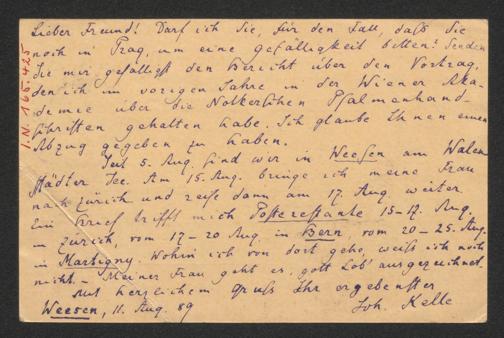 Lieber Freund! Darf ich Sie, für den Fall, daß Sie
noch in Prag, um eine gefälligkeit bitten? Senden
Sie mir gefälligst den Bericht über den Vortrag,
den ich im vorigen Jahre in der Wiener Aka-
demie über die Notkerschen Psalmenhand-
schriften gehalten habe. Ich glaube Ihnen einen
Abzug gegeben zu haben.
Seit 5. Aug. sind wir in Weesen am Walen
städter See. Am 15. Aug. bringe ich meine Frau
nach Zürich und reise dann am 17. Aug. weiter.
Ein Brief trifft mich Posterestante 15-17. Aug.
in Zürich, vom 17-20 Aug. in Bern, vom 20-25. Aug.
in Martigny. Wohin ich von dort gehe, weiß ich noch
nicht. - Meiner Frau geht es, gott Lob! ausgezeichnet.
Mit herzlichem gruß Ihr ergebenster
Weesen, 11. Aug. 89
Joh. Kelle
I.N. 165.425